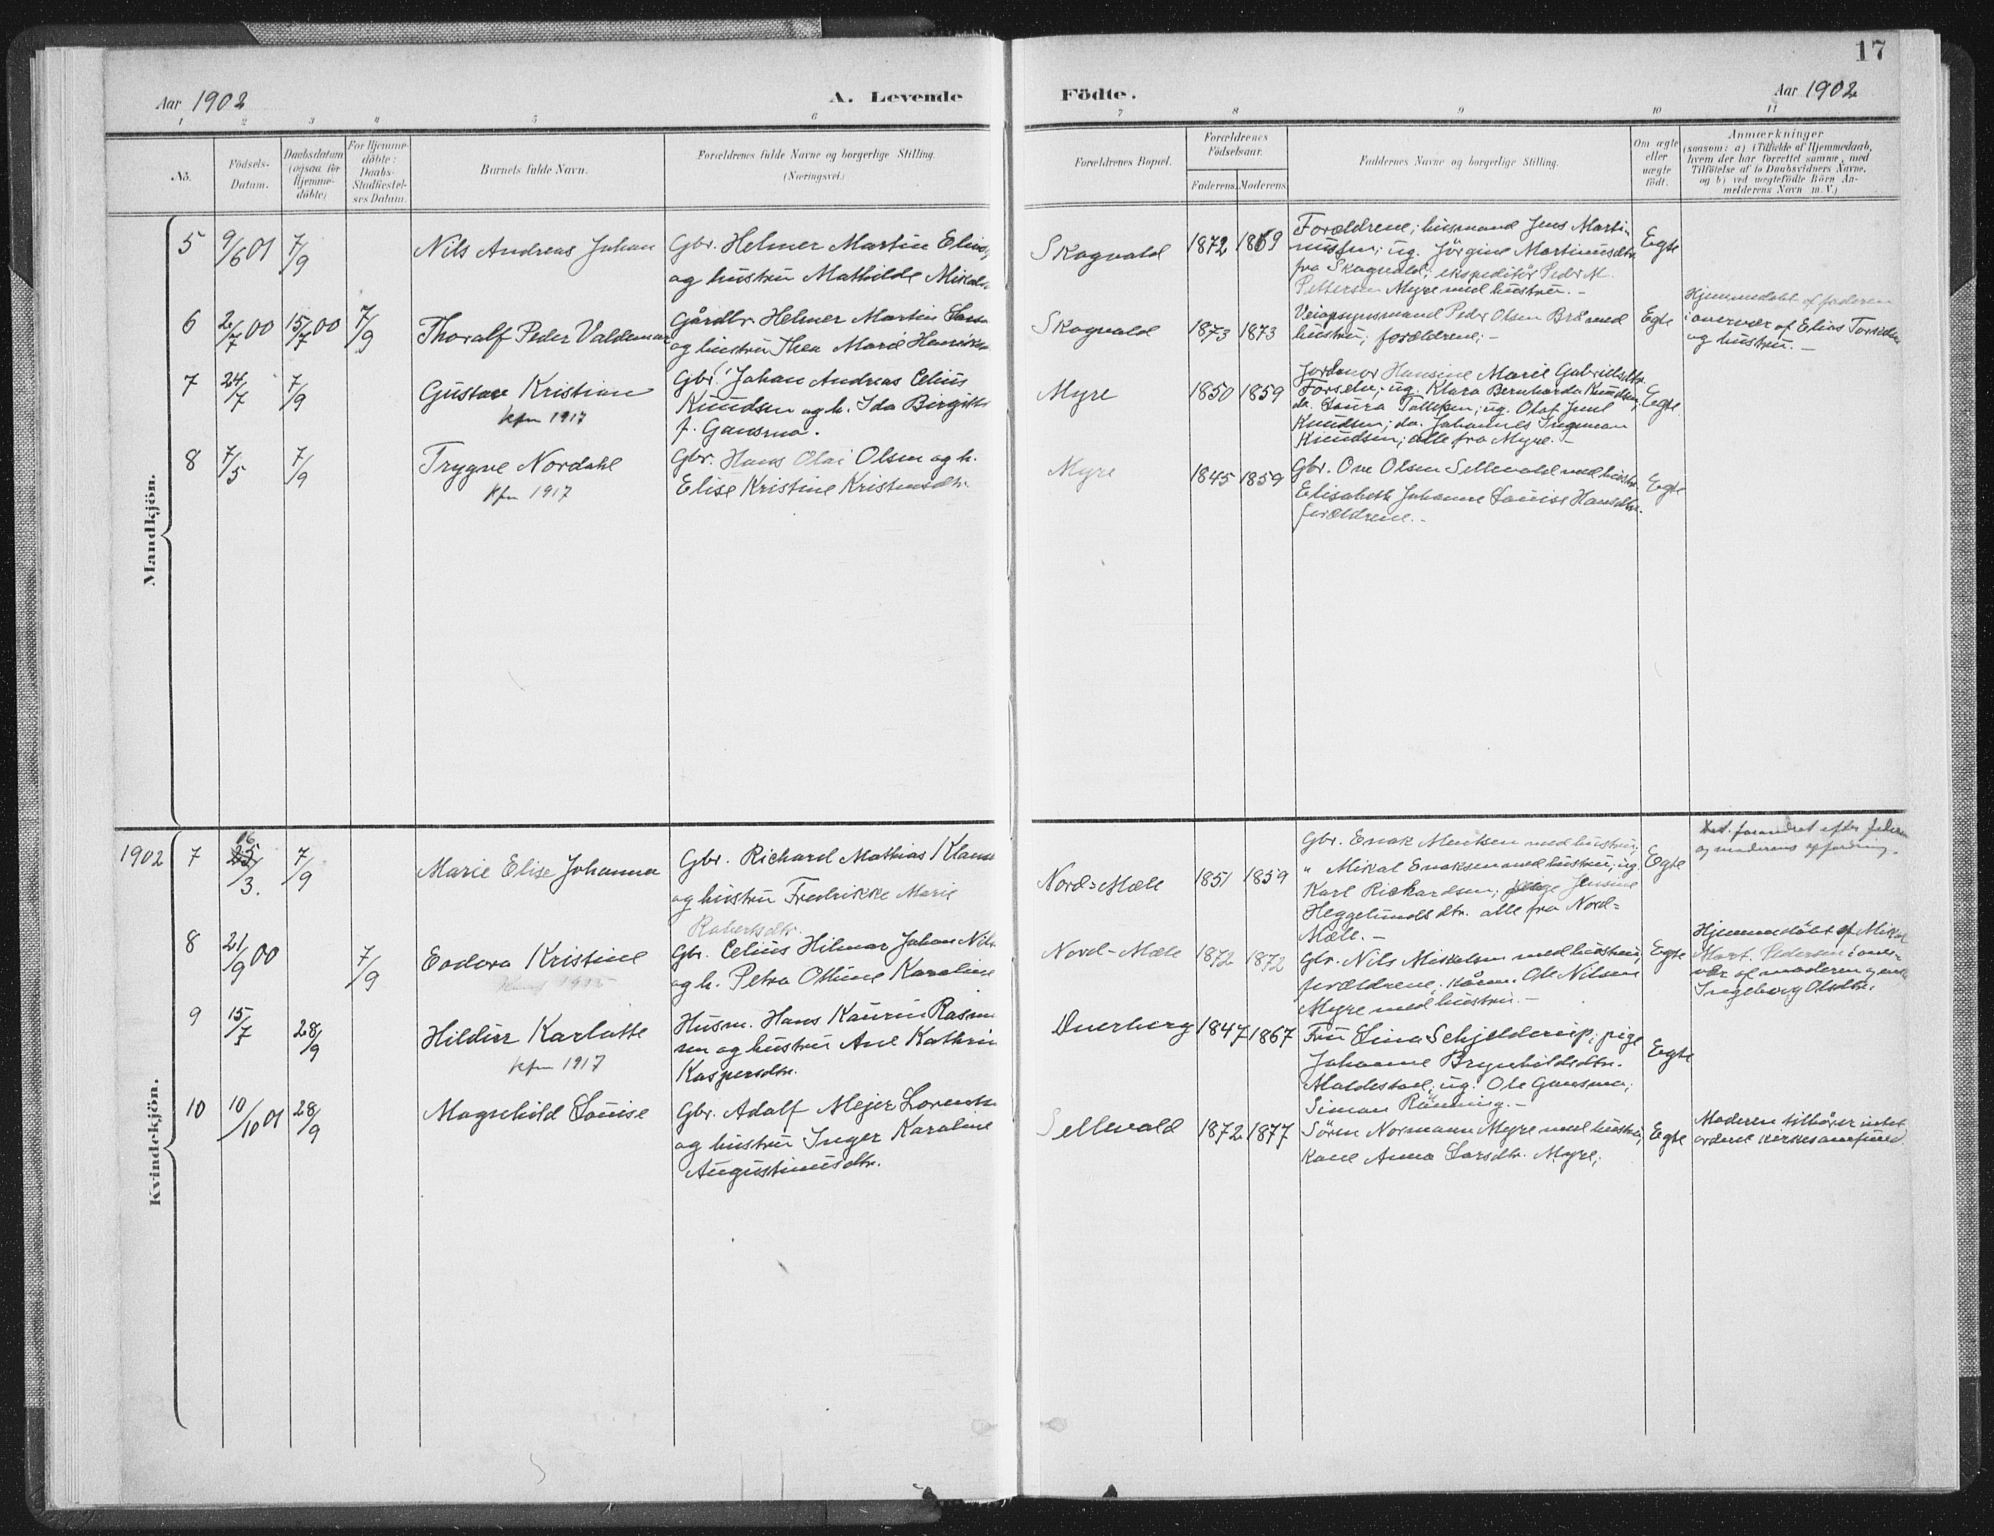 17
Aar 1902
A. Levende
Födte.
Aar 1902
1 2 3 4 5 6 7 8 9 10 11
No.
Födsels-
Datum.
Daabsdatum
(ogsaa for
Hjemme-
döbte)
For Hjemme-
döbte:
Daabs-
Stadfæstel-
ses Datum.
Barnets fulde Navn.
Forældrenes fulde Navne og borgerlige Stilling.
(Næringsvei.)
Forældrenes Bopæl.
Forældrenes
Födselsaar.
Faderens. Moderens.
Faddernes Navne og borgerlige Stilling.
Om ægte
eller
uægte
födt.
Anmærkninger
(saasom: a) i Tilfælde af Hjemmedaab,
hvem der har forrettet samme, med
Tilföielse af to Daabsvidners Navne,
og b) ved uægtefödte Börn An-
melderens Navn m. V.)
Mandkjön.
5 9/6 01 7/9
Nils Andreas Johan
Gbr. Helmer Martin Elias
og hustru Mathilde Mikals
Skogvold
1872 1869
Forældrene; husmand Jens Marti-
nussen; ug. Jörgine Martinusdtr.
fra Skogvold; ekspeditör Peder M.
Pettersen Myre med hustru. -
Egte
6 2/7 00 15/7 00 7/9
Thoralf Peder Valdemar
Gårdbr. Helmer Martin
og hustru Thea Marie
Skogvold
1873 1873
Veiopsynsmand Peder Olsen Brå med
hustru; forældrene; -
Egte
Hjemmedöbt af faderen
i overvær af Elias
og hustru. -
7 24/7 7/9
Gustav Kristian
kfm 1917
Gbr. Johan Andreas Celius
Knudsen og h. Ida Birgitte
f. Gausmo.
Myre
1850 1859
Jordmor Hansine Marie Gabrielsdtr.
ug. Klara Bernharda Knudsen;
do. Laura ug. Olaf Juul
Knudsen; do. Johannes Ingeman
Knudsen; alle fra Myre. -
Egte
8 7/5 7/9
Trygve Nordahl
kfm 1917
Gbr. Hans Olai Olsen og h.
Elise Kristine Kristensdtr.
Myre
1845 1859
Gbr. Ove Olsen Sellevold med hustru
Elisabeth Johanne Louise Hansdtr.
forældrene. -
Egte
Kvindekjön.
1902 7 25 26/3. 7/9
Marie Elise Johanna
Gbr. Richard Mathias
og hustru Fredrikke Marie
Robertsdtr.
Nord-Mæle
1851 1859
Gbr. Enok Mentsen med hustru;
" Mikal Enoksen med hustru; ug.
Karl Richardsen; pige Jensine
Heggelundsdtr. alle fra Nord-
Mæle. -
Egte
Dat. forandret efter faderens
og moderens opfordring.
8 21/9 00 7/9
Eodora Kristine
Gbr. Celius Hilmar Johan Nils
og h. Petra Ottine Karoline
Nord-Mæle
1872 1872
Gbr. Nils Mikalsen med hustru;
forældrene; Ole Nilsen
Myre med hustru. -
Egte
Hjemmedöbt af Mikal
Mart. Pedersen i over-
vær af moderen og enke
Ingeborg Olsdtr.
9 15/7 28/9
Hildur Karlotte
kfm 1917
Husm. Hans Kaurin Rasmu
sen og hustru Ane Kathrin
Kaspersdtr.
Duerberg
1847 1867
Fru Lina Schjelderup; pige
Johanne Brynhildsdtr.
ug. Ole Gausmo;
Simon Rönning. -
Egte
10 10/10 01 28/9
Magnhild Louise
Gbr. Adolf Mejer
og hustru Inger Karoline
Augustinusdtr.
Sellevold
1872 1877
Sören Normann Myre med hustru,
Kone Anna Larsdtr. Myre;
Egte
Moderen tilhörer intet
ordnet kirkesamfund.